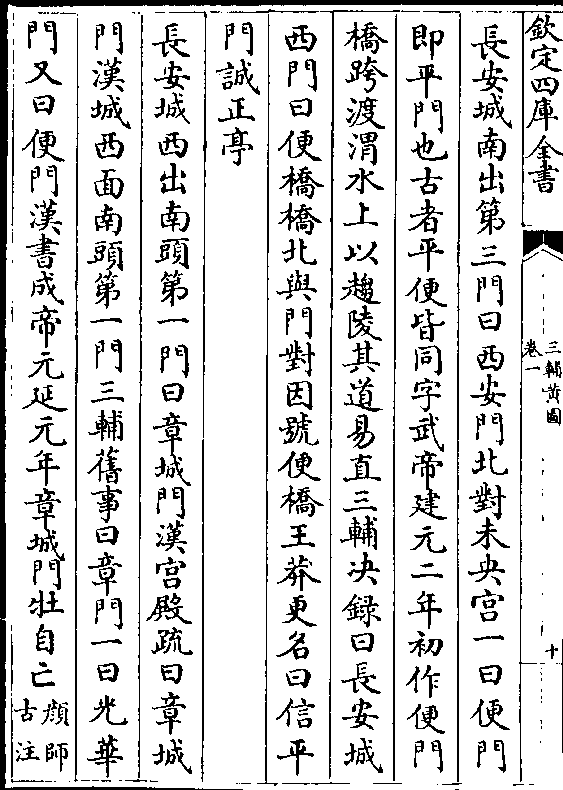 欽定四庫全書
三輔黃圖
卷一
十
長安城南出第三門曰西安門北對未央宫一曰便門
即平門也古者平便皆同字武帝建元二年初作便門
橋跨渡渭水上以趨陵其道易直三輔决録曰長安城
西門曰便橋橋北與門對因號便橋王莽更名曰信平
門誠正亭
長安城西出南頭第一門曰章城門漢宫殿疏曰章城
門漢城西面南頭第一門三輔舊事曰章門一曰光華
門又曰便門漢書成帝元延元年章城門牡自亡顔師
古注